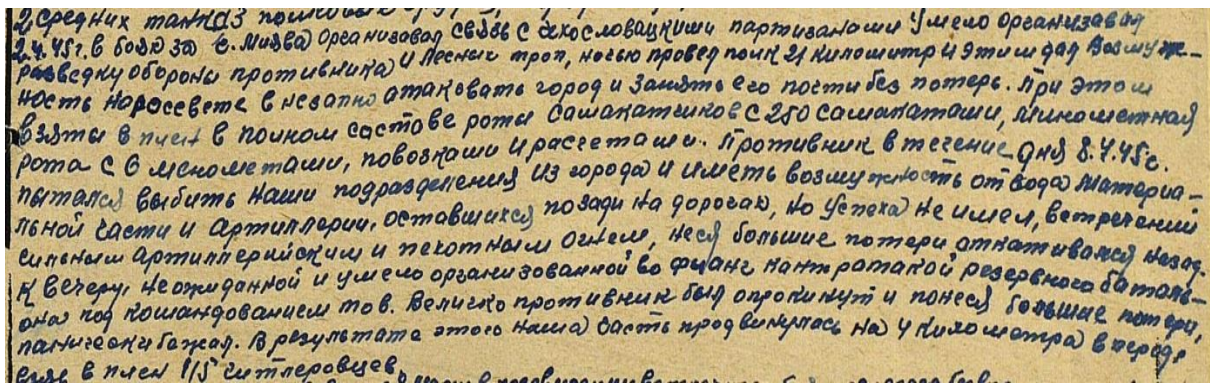 2 средних танка 3 полковых
2.4.45г. в боях за г. организавал связь с чехословацкими партизанами умело организавал
разведку обороны противника и лесных троп, ночью провел полк 21 километр и этим дал возмуж-
ность наросвете внезапно атаковать город и занять его почти без потерь. При этом
взяты в плен в полном составе роты самакатчиков с 250 самакатами, минометная
рота с 6 менометами, повозками и расчетами. Противник в течение дня 8.4.45г.
пытался выбить наши подразделения из города и иметь возмужность отвода материа-
льной части и артиллерии, оставшихся позади на дорогах, но успеха не имел, встречений
сильным артиллерийским и пехотным огнем, неся большие потери аткатывался назад.
К вечеру, неожиданной и умело организованной во фланг кантратакой резервного баталь-
она под командованием тов. Величко противник был опрокинут и понеся большие потери,
панически бежал. В результате этого наша часть продвинулась на 4 километра вперед
взяв в плен 115 гитлеровцев.